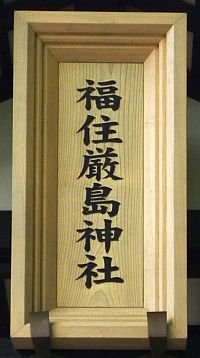 福住厳島神社